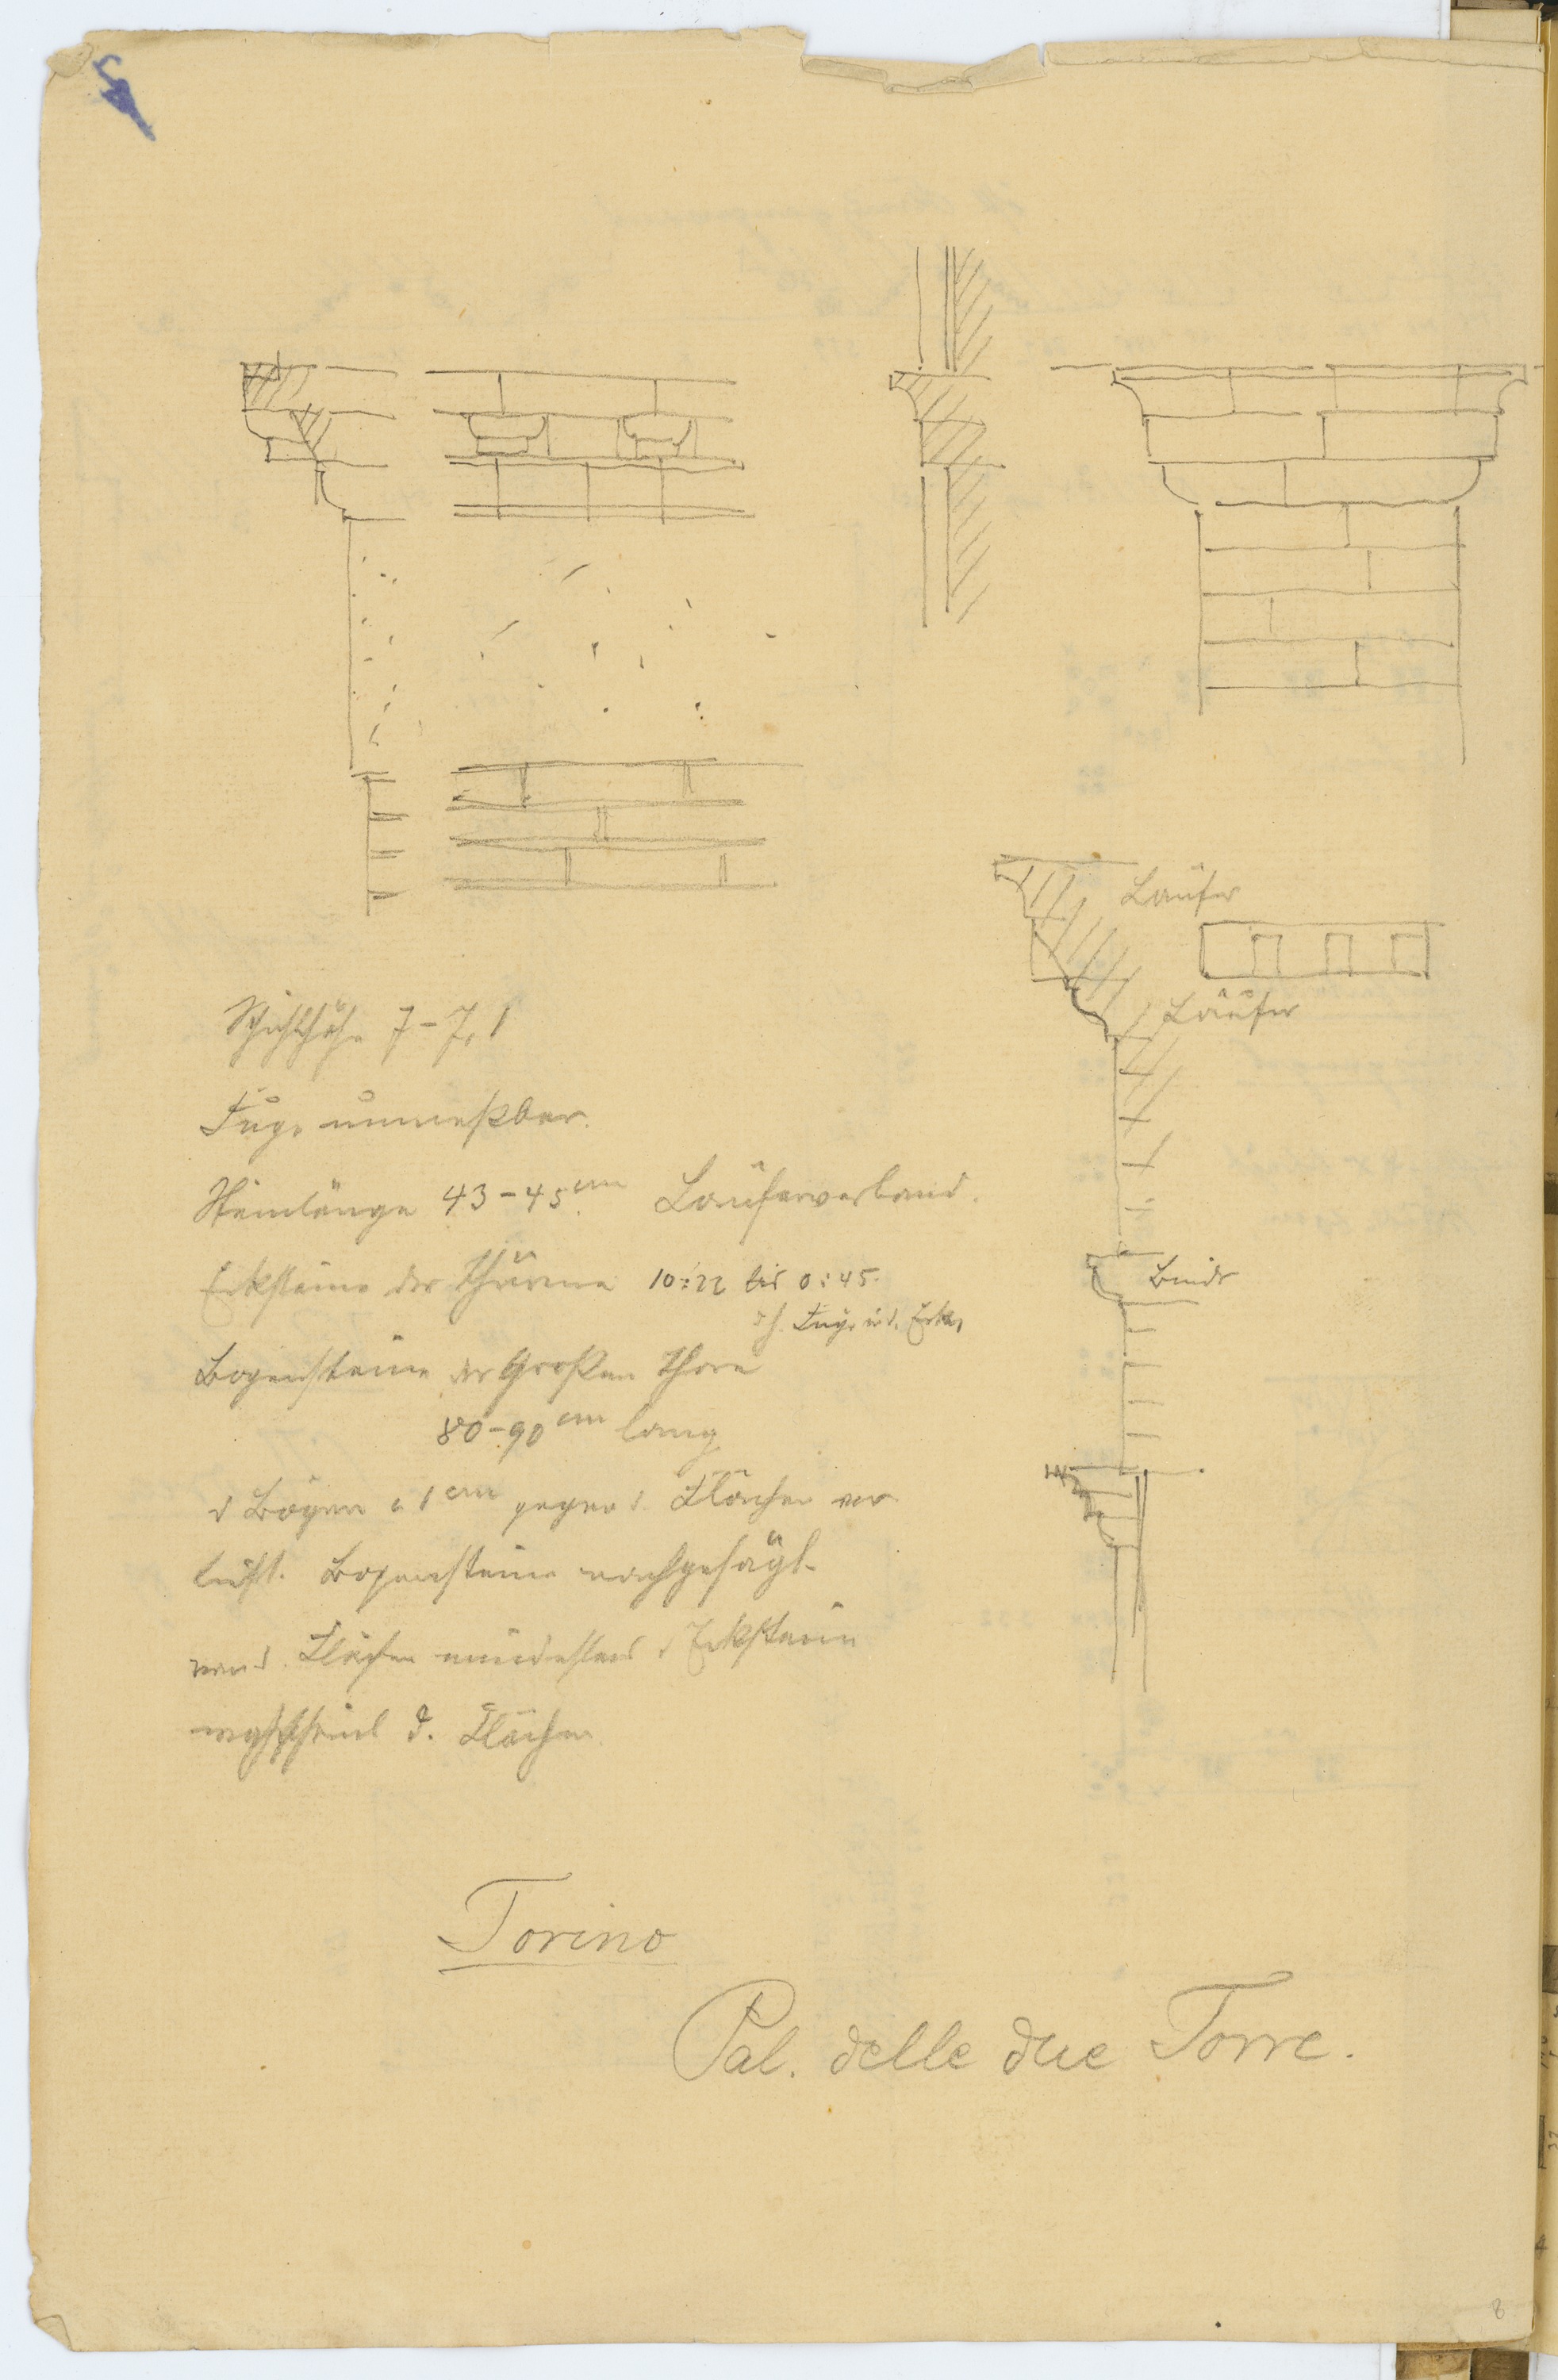 Läufer
Läufer
Schichthöhe 7-7,1
Fuge unmeßbar.
Steinlänge 43-45 cm Läuferverband.
Ecksteine der Thürme 10:22 bis 0:45.
Fuge in d. Ecke
Binder
Bogensteine der Großen Thore
80-90 cm lang
d Bögen 1 cm gegen d. Flächen
Bogensteine nachgesägt.
d. Flächen mindestens d Eckstein
d. Flächen
Torino
Pal. delle due Torre.
8